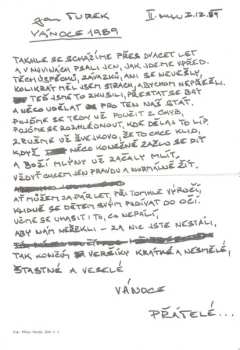 Jan TUREK
VÁNOCE 1989
TAKHLE SE SCHÁZÍME PŘES DVACET LET
A V NOVINÁCH PSALI JEN, JAK JDEME VPŘED.
TĚCH ÚSPĚCHŮ, ZÁVAZKŮ, ANI SE NEVEŠLY,
KOLIKRÁT MĚL JSEM STRACH, ABYCHOM NEPŘEŠLI.
TEĎ JSME TO ZKUSILI, PŘESTAT SE BÁT
A NĚCO UDĚLAT PRO TEN NÁŠ STÁT.
POJĎME SE TEDY UČ POUČIT Z CHYB,
POJĎME SE ROZHLÉDNOUT, KDE DĚLAJ TO LÍP.
ZRUŠME UŽ ŠVEJKOVO, ŽE TO CHCE KLID,
KDYŽ NĚCO KONEČNĚ ZAČLO SE DÍT
A BOŽÍ MLÝNY UŽ ZAČALY MLÍT,
VŽDYŤ CHCEM JEN PRAVDU A NORMÁLNĚ ŽÍT.
AŤ MŮŽEM ZA PÁR LET, PŘI TOMHLE VÝROČÍ,
KLIDNĚ SE DĚTEM SVÝM PODÍVAT DO OČÍ.
UČME SE UHASIT I TO, CO NEPÁLÍ,
ABY NÁM NEŘEKLI – ZA NIC JSTE NESTÁLI,
TAK KONČÍM VERŠÍKY KRÁTKÉ A NESMĚLÉ,
ŠŤASTNÉ A VESELÉ
VÁNOCE
PŘÁTELÉ...